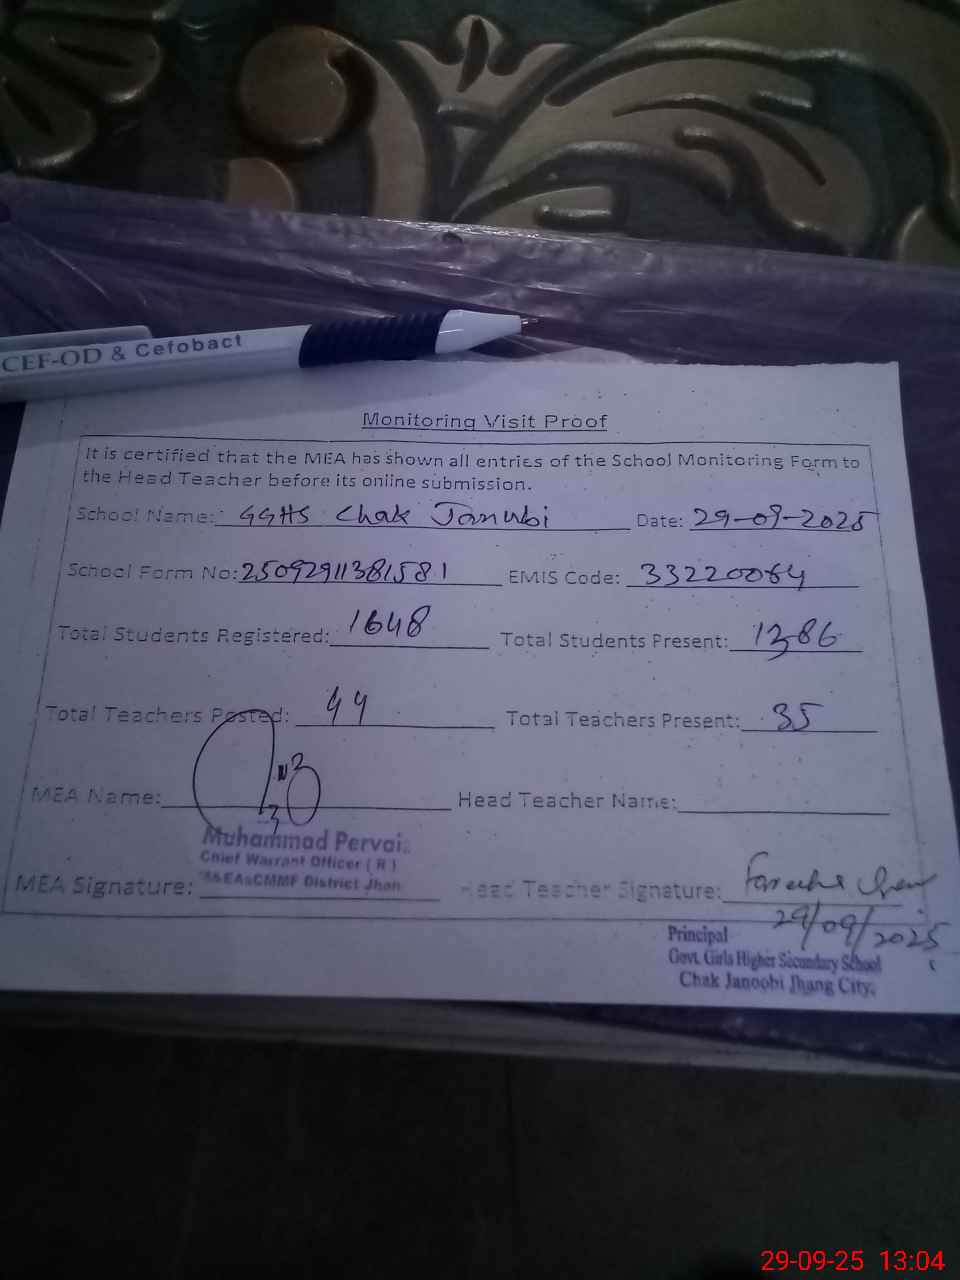 CEF-OD & Cefobact
Monitoring Visit Proof
It is certified that the MEA has shown all entries of the School Monitoring Form to
the Head Teacher before its online submission.
School Name: GGHS Chak Janubi Date: 29-09-2025
School Form No: 25092911381581 EMIS Code: 33220064
Total Students Registered: 1648 Total Students Present: 1386
Total Teachers Posted: 44 Total Teachers Present: 35
MEA Name: Head Teacher Name:
Muhammad Pervai
Chief Warrant Officer (R)
MEA Signature: District Jhan Head Teacher Signature:
29/09/2025
Principal
Govt. Girls Higher Secondary School
Chak Janoobi Jhang City.
29-09-25 13:04